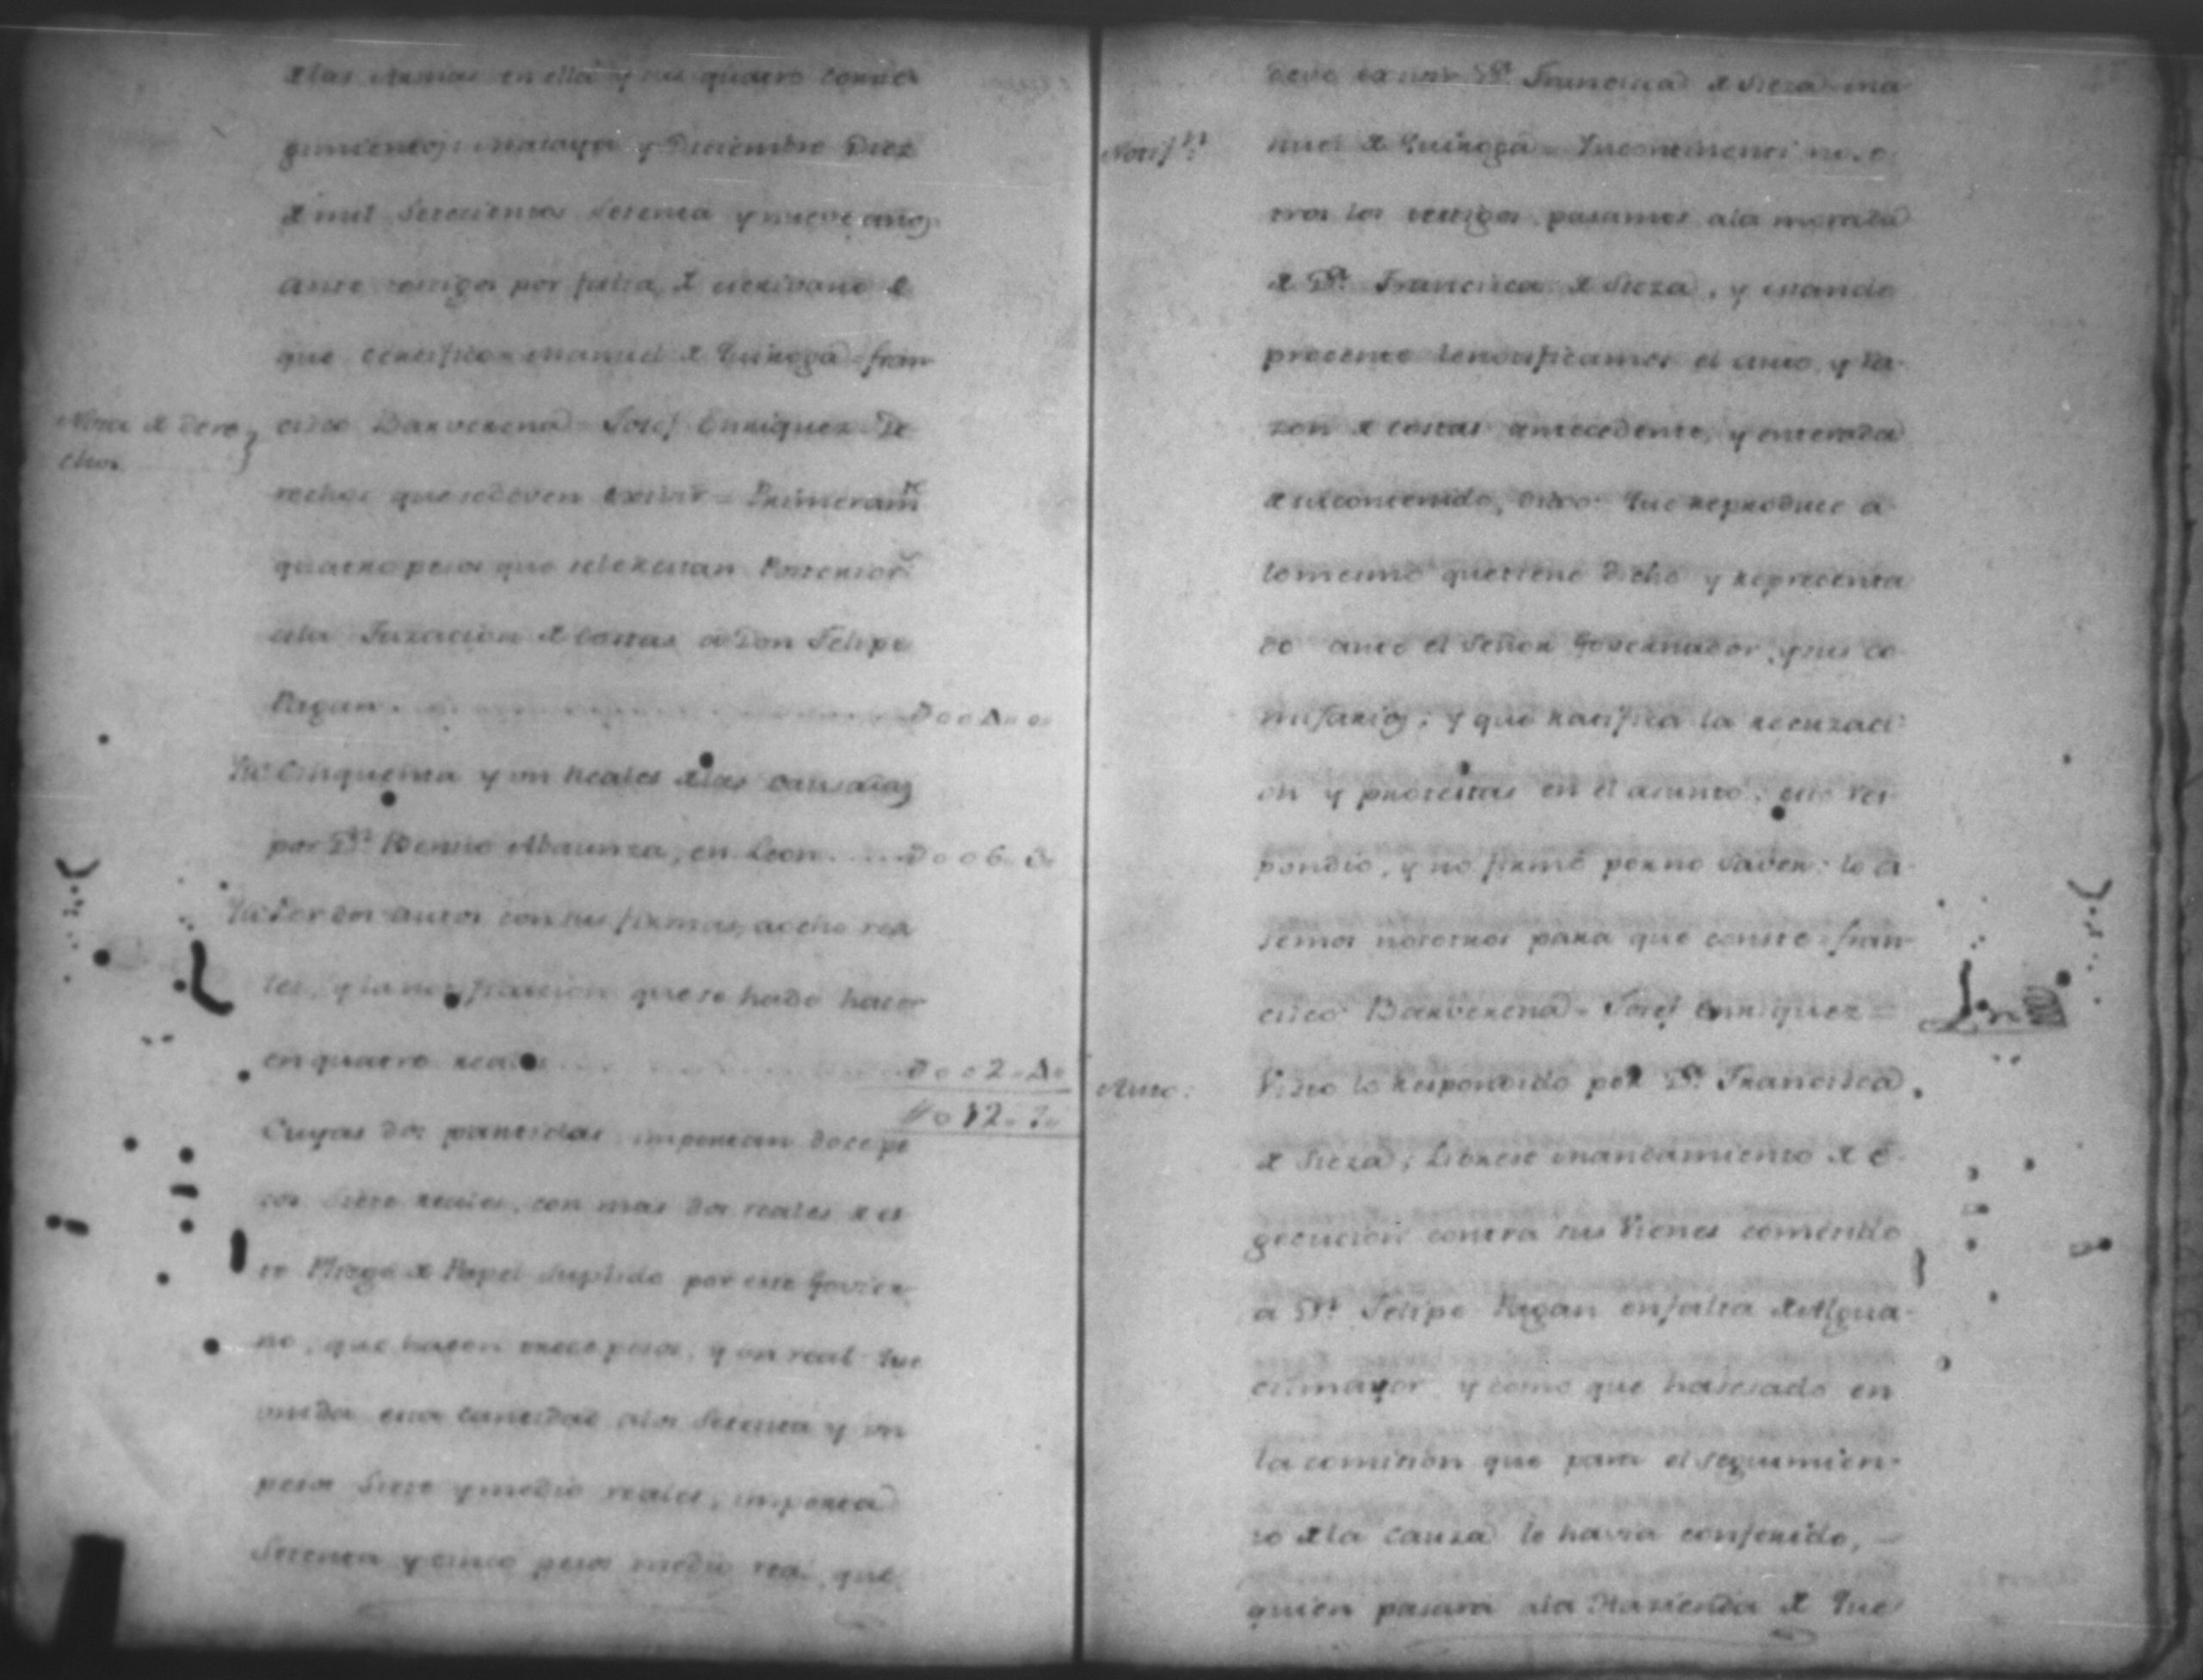 en ella y sus quatro Corre
gimientos: Masaya y Diciembre Diez
de mil Setecientos Setenta y nueve años
ante testigos por falta de escrivano de
que certifico = Manuel de Quiroga = fran
Nota de dere
chos
cisco Barverena = Josef Enriquez = De
rechos que sedeven exivir = Primeram.te
quatro pesos que
ala Tazacion de Costas a Don Felipe
Pagan D004..0
Yt. Cinquenta y un reales de las causadas
por Dn. Benito Abaunza, en Leon D006..3
Yt. Por dos autos con sus firmas, a ocho rea
les, y la notificacion que se hade hacer
en quatro reales D002..4
D012..7
Cuyas dos partidas importan doce pe
sos Siete reales, con mas dos reales de es
te Pliego de Papel suplido por este Govier
no, que hacen trece pesos, y un real que
unida esta cantidad alos Setenta y un
pesos Siete y medio reales, importa
Setenta y cinco pesos medio real, que
deve exivir Da. Francisca de Sieza = Ma
Notif.n
nuel de Quiroga = Yncontinenti no.so
tros los testigos pasamos ala morada
de Da. Francisca de Sieza, y estando
precente lenotificamos el auto, y Ra
zon de costas antecedente, y enterada
de sucontenido, Dixo: Que reproduce a
lomesmo quetiene dicho y reprecenta
do ante el Señor Governador, y sus co
misarios; y que ratifica la recuzaci
on y protestas en el asunto, esto res
pondio, y no firmó porno saver: lo a
semos nosotros para que conste = fran
cisco Barverena = Josef Enriquez =
Auto:
Visto lo Respondido por Da. Francisca
de Sieza; Librese mandamiento de e
gecucion contra sus Vienes cometido
a Dn. Felipe Pagan enfalta de Algua
cilmayor y como que hasesado en
la comision que para el seguimien
to de la causa le havia conferido,
quien pasara ala Hazienda de Que